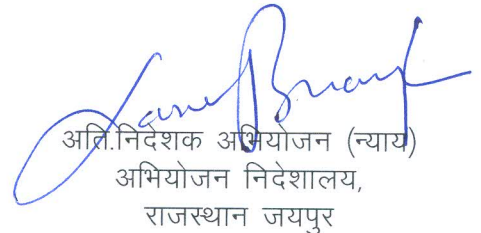 अति.निदेशक अभियोजन (न्याय)
अभियोजन निदेशालय,
राजस्थान जयपुर